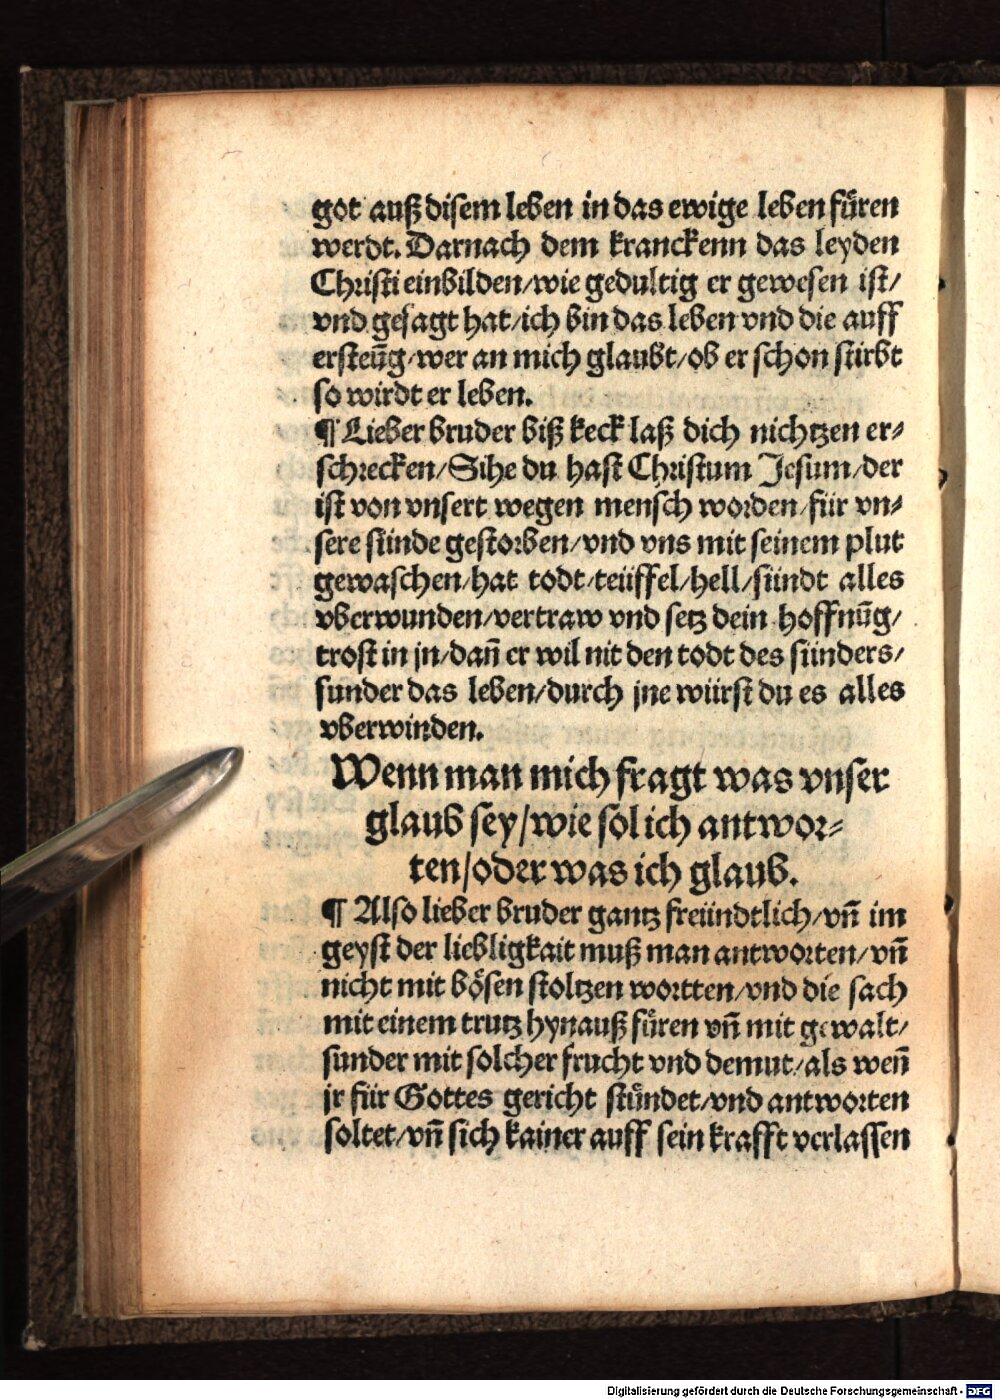 got auß disem leben in das ewige leben fuͤren
werdt. Darnach dem kranckenn das leyden
Christi einbilden/wie gedultig er gewesen ist/
vnd gesagt hat/ich bin das leben vnd die auff
ersteūg/wer an mich glaubt/ob er schon stirbt
so wirdt er leben.
¶ Lieber bruder biß keck laß dich nichtzen er⸗
schrecken/Sihe du hast Christum Jesum/der
ist von vnsert wegen mensch worden/für vn⸗
sere sünde gestorben/vnd vns mit seinem plut
gewaschen/hat todt/teüffel/hell/sündt alles
vberwunden/vertraw vnd setz dein hoffnūg/
trost in jn/dañ er wil nit den todt des sünders/
sunder das leben/durch jne würst du es alles
vberwinden.
Wenn man mich fragt was vnser
glaub sey/wie sol ich antwor⸗
ten/oder was ich glaub.
¶ Also lieber bruder gantz freündtlich/vñ im
geyst der liebligkait muß man antworten/vñ
nicht mit boͤsen stoltzen wortten/vnd die sach
mit einem trutz hynauß fuͤren vñ mit gewalt/
sunder mit solcher frucht vnd demut/als weñ
jr für Gottes gericht stuͤndet/vnd antworten
soltet/vñ sich kainer auff sein krafft verlassen
Digitalisierung gefördert durch die Deutsche Forschungsgemeinschaft - DFG